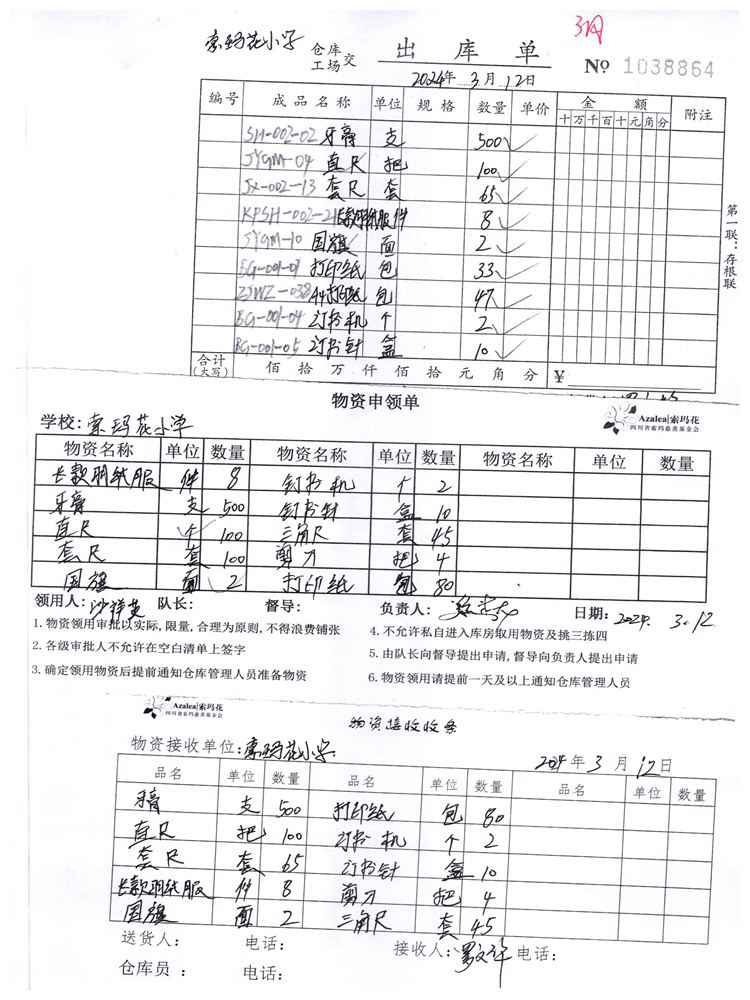 3月
索玛花小学 仓库 工场 交 出库单
2024年 3月 12日 № 1038864
编号 成品名称 单位 规格 数量 单价 金额 附注
十 万 千 百 十 元 角 分
SH-002-02 牙膏 支 500
JYGM-04 直尺 把 100
JX-002-13 套尺 套 65
KPSH-002-21 长款羽绒服 件 8
JYGM-10 国旗 面 2
BG-001-01 打印纸 包 33
ZJWZ-038 A4打印纸 包 47
BG-001-04 订书机 个 2
BG-001-05 订书针 盒 10
合计(大写) 佰 拾 万 仟 佰 拾 元 角 分 ¥
第一联:存根联
物资申领单
Azalea|索玛花
四川省索玛慈善基金会
学校:索玛花小学
物资名称 单位 数量 物资名称 单位 数量 物资名称 单位 数量
长款羽绒服 件 8 钉书机 个 2
牙膏 支 500 钉书针 盒 10
直尺 个 100 三角尺 套 45
套尺 套 100 剪刀 把 4
国旗 面 2 打印纸 包 80
领用人: 队长: 督导: 负责人: 日期:2024.3.12
1.物资领用审批以实际,限量,合理为原则,不得浪费铺张
4.不允许私自进入库房取用物资及挑三拣四
2.各级审批人不允许在空白清单上签字
5.由队长向督导提出申请,督导向负责人提出申请
3.确定领用物资后提前通知仓库管理人员准备物资
6.物资领用请提前一天及以上通知仓库管理人员
Azalea|索玛花
四川省索玛慈善基金会
物资接收收条
物资接收单位:索玛花小学 2024年 3月 12日
品名 单位 数量 品名 单位 数量 品名 单位 数量
牙膏 支 500 打印纸 包 80
直尺 把 100 订书机 个 2
套尺 套 65 订书针 盒 10
长款羽绒服 件 8 剪刀 把 4
国旗 面 2 三角尺 套 45
送货人: 电话: 接收人: 电话:
仓库员: 电话: